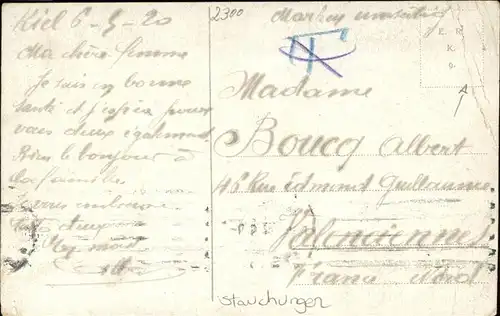 Kiel 6-5-20
Ma chère femme
Je suis en bonne
santé et j'espère pour
vous deux également
Bien le bonjour à
la famille
Je vous embrasse
2300
T
Madame
Boucq Albert
46 Rue Edmond Guillaume
Valenciennes
France Nord
E.
R.
K.
O.
Stauchungen